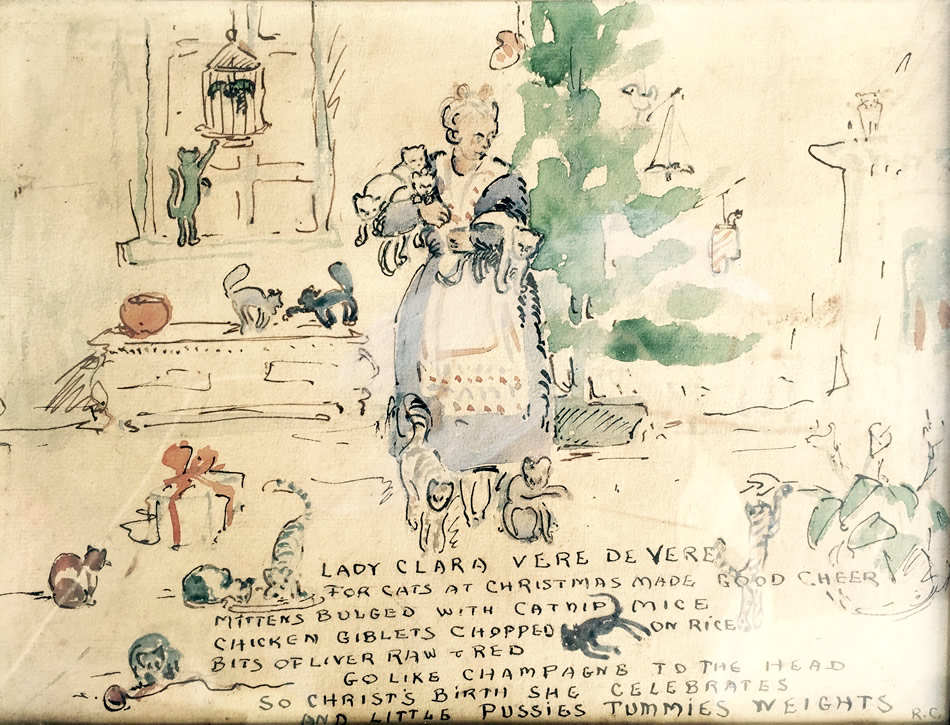 LADY CLARA VERE DE VERE
FOR CATS AT CHRISTMAS MADE GOOD CHEER
MITTENS BULGED WITH CATNIP MICE
CHICKEN GIBLETS CHOPPED ON RICE
BITS OF LIVER RAW & RED
GO LIKE CHAMPAGNE TO THE HEAD
SO CHRIST'S BIRTH SHE CELEBRATES
AND LITTLE PUSSIES TUMMIES WEIGHTS
R.C.